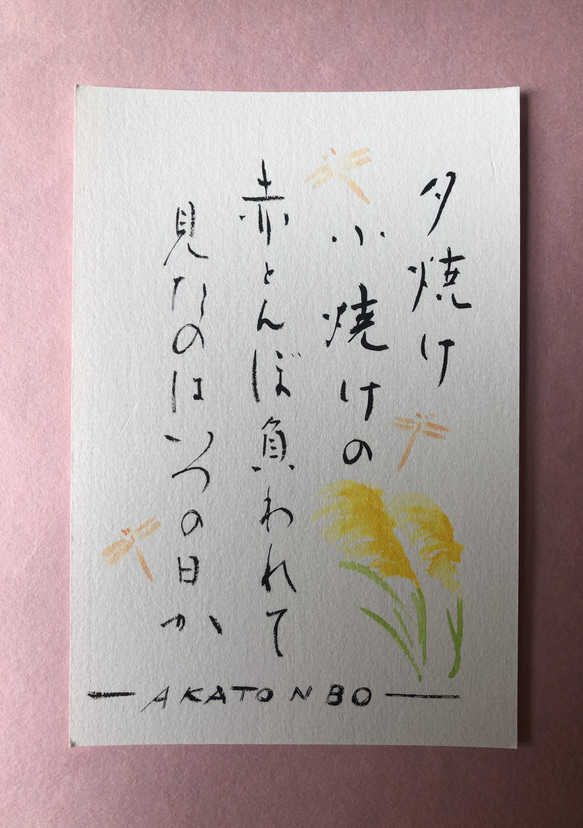 夕焼け
小焼けの
赤とんぼ負われて
見たのはいつの日か
AKATONBO